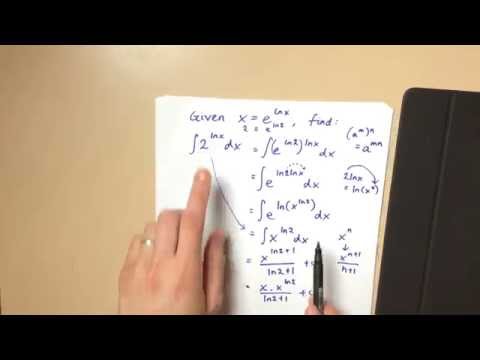 Given x = e^{ln x}, find:
2 = e^{ln 2}
∫2^{ln x} dx = ∫(e^{ln 2})^{ln x} dx
(a^m)^n = a^{mn}
= ∫e^{ln 2 ln x} dx
2 ln x = ln(x^2)
= ∫e^{ln(x^{ln 2})} dx
= ∫x^{ln 2} dx
x^n ↓ x^{n+1}/n+1
= x^{ln 2+1}/ln 2+1 +
= x·x^{ln 2}/ln 2+1 +